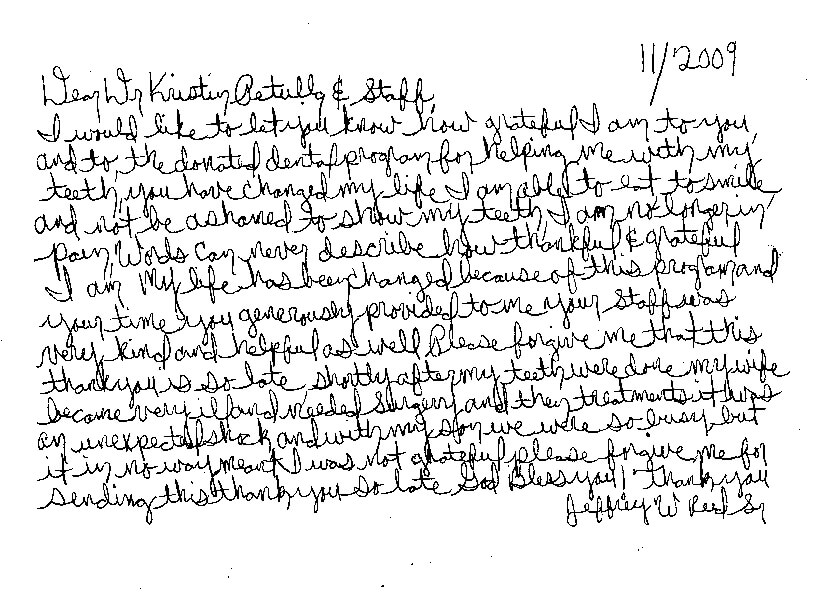 11/2009
Dear Dr Kristin & Staff,
I would like to let you know how grateful I am to you
and to the donated dental program for helping me with my
teeth, you have changed my life I am able to eat to smile
and not be ashamed to show my teeth, I am no longer in
pain, Words can never describe how thankful & grateful
I am My life has been changed because of this program and
your time you generously provided to me your Staff was
very kind and helpful as well Please forgive me that this
thank you is so late shortly after my teeth were done my wife
became very ill and needed Surgery and then treatments it was
an unexpected shock and with my son we were so busy but
it in no way meant I was not grateful please forgive me for
sending this thank you so late God Bless you! thank you
Jeffrey W Sr